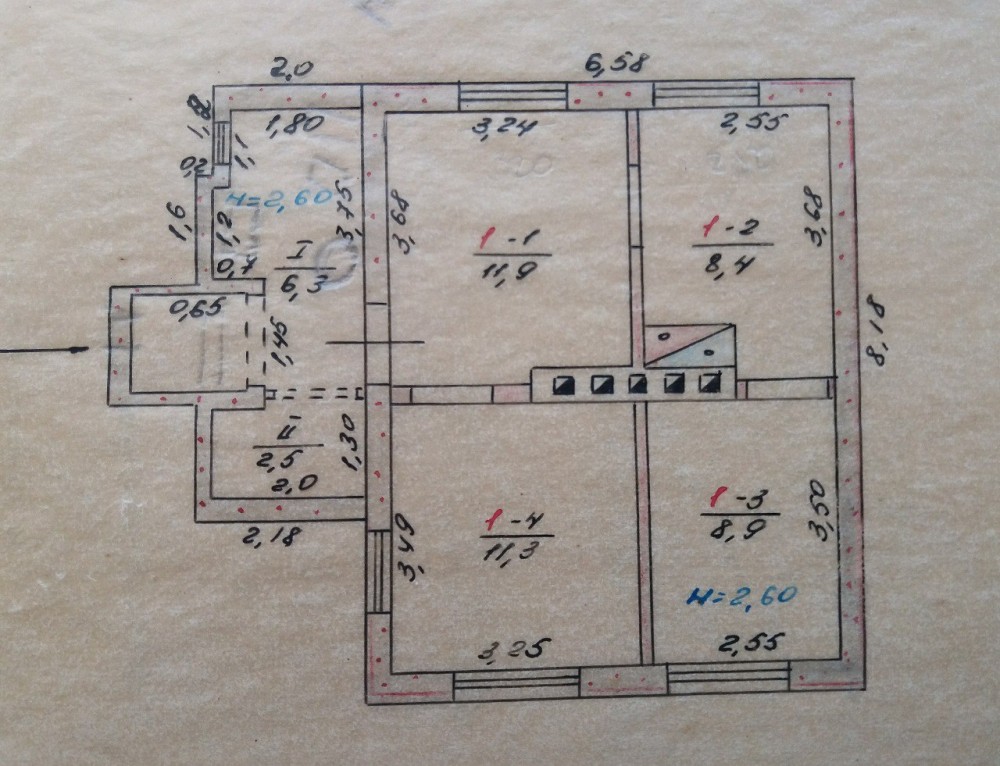 2,0
6,58
1,80
3,24
2,55
0,2
1,1
н=2,60
1,6
1,2
3,75
3,68
3,68
I
6,3
0,7
1-1
11,9
1-2
8,4
0,65
1,45
8,18
II
2,5
1,30
2,0
2,18
3,49
1-4
11,3
1-3
8,9
3,50
н=2,60
3,25
2,55